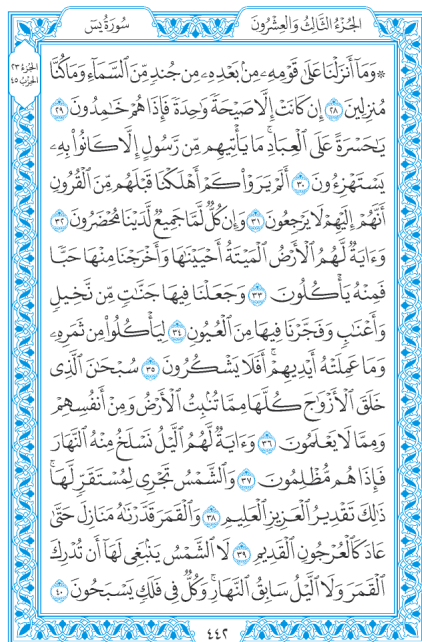 الجُزْءُ الثَّالِثُ وَالعِشْرُونَ
سُورَةُ يسٓ
الجُزْءُ ٢٣
الحِزْبُ ٤٥
۞ وَمَآ أَنزَلْنَا عَلَىٰ قَوْمِهِۦ مِنۢ بَعْدِهِۦ مِن جُندٍ مِّنَ ٱلسَّمَآءِ وَمَا كُنَّا
مُنزِلِينَ ٢٨ إِن كَانَتْ إِلَّا صَيْحَةً وَٰحِدَةً فَإِذَا هُمْ خَٰمِدُونَ ٢٩
يَٰحَسْرَةً عَلَى ٱلْعِبَادِۚ مَا يَأْتِيهِم مِّن رَّسُولٍ إِلَّا كَانُوا۟ بِهِۦ
يَسْتَهْزِءُونَ ٣٠ أَلَمْ يَرَوْا۟ كَمْ أَهْلَكْنَا قَبْلَهُم مِّنَ ٱلْقُرُونِ
أَنَّهُمْ إِلَيْهِمْ لَا يَرْجِعُونَ ٣١ وَإِن كُلٌّ لَّمَّا جَمِيعٌ لَّدَيْنَا مُحْضَرُونَ ٣٢
وَءَايَةٌ لَّهُمُ ٱلْأَرْضُ ٱلْمَيْتَةُ أَحْيَيْنَٰهَا وَأَخْرَجْنَا مِنْهَا حَبًّا
فَمِنْهُ يَأْكُلُونَ ٣٣ وَجَعَلْنَا فِيهَا جَنَّٰتٍ مِّن نَّخِيلٍ
وَأَعْنَٰبٍ وَفَجَّرْنَا فِيهَا مِنَ ٱلْعُيُونِ ٣٤ لِيَأْكُلُوا۟ مِن ثَمَرِهِۦ
وَمَا عَمِلَتْهُ أَيْدِيهِمْۚ أَفَلَا يَشْكُرُونَ ٣٥ سُبْحَٰنَ ٱلَّذِى
خَلَقَ ٱلْأَزْوَٰجَ كُلَّهَا مِمَّا تُنۢبِتُ ٱلْأَرْضُ وَمِنْ أَنفُسِهِمْ
وَمِمَّا لَا يَعْلَمُونَ ٣٦ وَءَايَةٌ لَّهُمُ ٱلَّيْلُ نَسْلَخُ مِنْهُ ٱلنَّهَارَ
فَإِذَا هُم مُّظْلِمُونَ ٣٧ وَٱلشَّمْسُ تَجْرِى لِمُسْتَقَرٍّ لَّهَاۚ
ذَٰلِكَ تَقْدِيرُ ٱلْعَزِيزِ ٱلْعَلِيمِ ٣٨ وَٱلْقَمَرَ قَدَّرْنَٰهُ مَنَازِلَ حَتَّىٰ
عَادَ كَٱلْعُرْجُونِ ٱلْقَدِيمِ ٣٩ لَا ٱلشَّمْسُ يَنۢبَغِى لَهَآ أَن تُدْرِكَ
ٱلْقَمَرَ وَلَا ٱلَّيْلُ سَابِقُ ٱلنَّهَارِۚ وَكُلٌّ فِى فَلَكٍ يَسْبَحُونَ ٤٠
٤٤٢